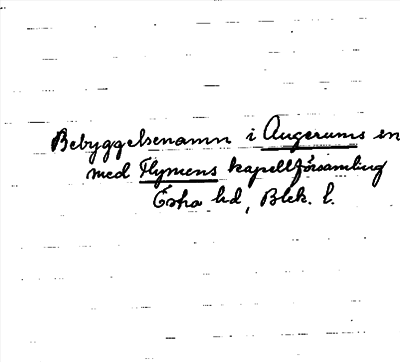 Bebyggelsenamn i Augerums sn
med Flymens kapellförsamling
Östra hd, Blek. l.